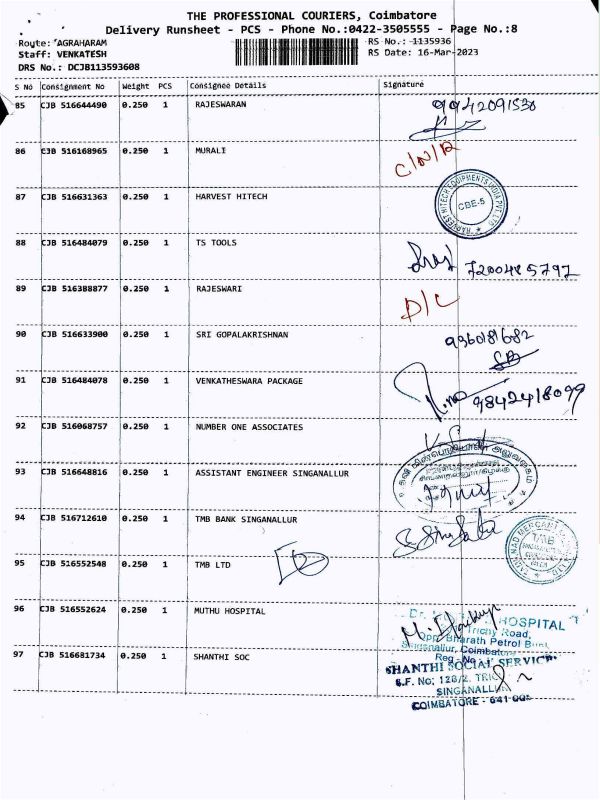 THE PROFESSIONAL COURIERS, Coimbatore
Delivery Runsheet - PCS - Phone No.:0422-3505555 - Page No.:8
Route: AGRAHARAM
RS No.: 1135936
Staff: VENKATESH
RS Date: 16-Mar-2023
DRS No.: DCJB113593608
S No Consignment No Weight PCS Consignee Details Signature
85 CJB 516644490 0.250 1 RAJESWARAN 9942091538
86 CJB 516168965 0.250 1 MURALI C/N/R
87 CJB 516631363 0.250 1 HARVEST HITECH
HARVEST HITECH EQUIPMENTS INDIA PVT LTD
CBE-5
88 CJB 516484079 0.250 1 TS TOOLS 7200485792
89 CJB 516388877 0.250 1 RAJESWARI D/C
90 CJB 516633900 0.250 1 SRI GOPALAKRISHNAN 9360181682
91 CJB 516484078 0.250 1 VENKATHESWARA PACKAGE 9842418099
92 CJB 516068757 0.250 1 NUMBER ONE ASSOCIATES
93 CJB 516648816 0.250 1 ASSISTANT ENGINEER SINGANALLUR
94 CJB 516712610 0.250 1 TMB BANK SINGANALLUR
TMB
95 CJB 516552548 0.250 1 TMB LTD
96 CJB 516552624 0.250 1 MUTHU HOSPITAL
HOSPITAL
Trichy Road,
Opp. Bharath Petrol
Singanallur, Coimbatore
Reg. No
97 CJB 516681734 0.250 1 SHANTHI SOC
SHANTHI SOCIAL SERVICE
S.F. No: 128/2. TRICHY
SINGANALLUR
COIMBATORE - 641 005